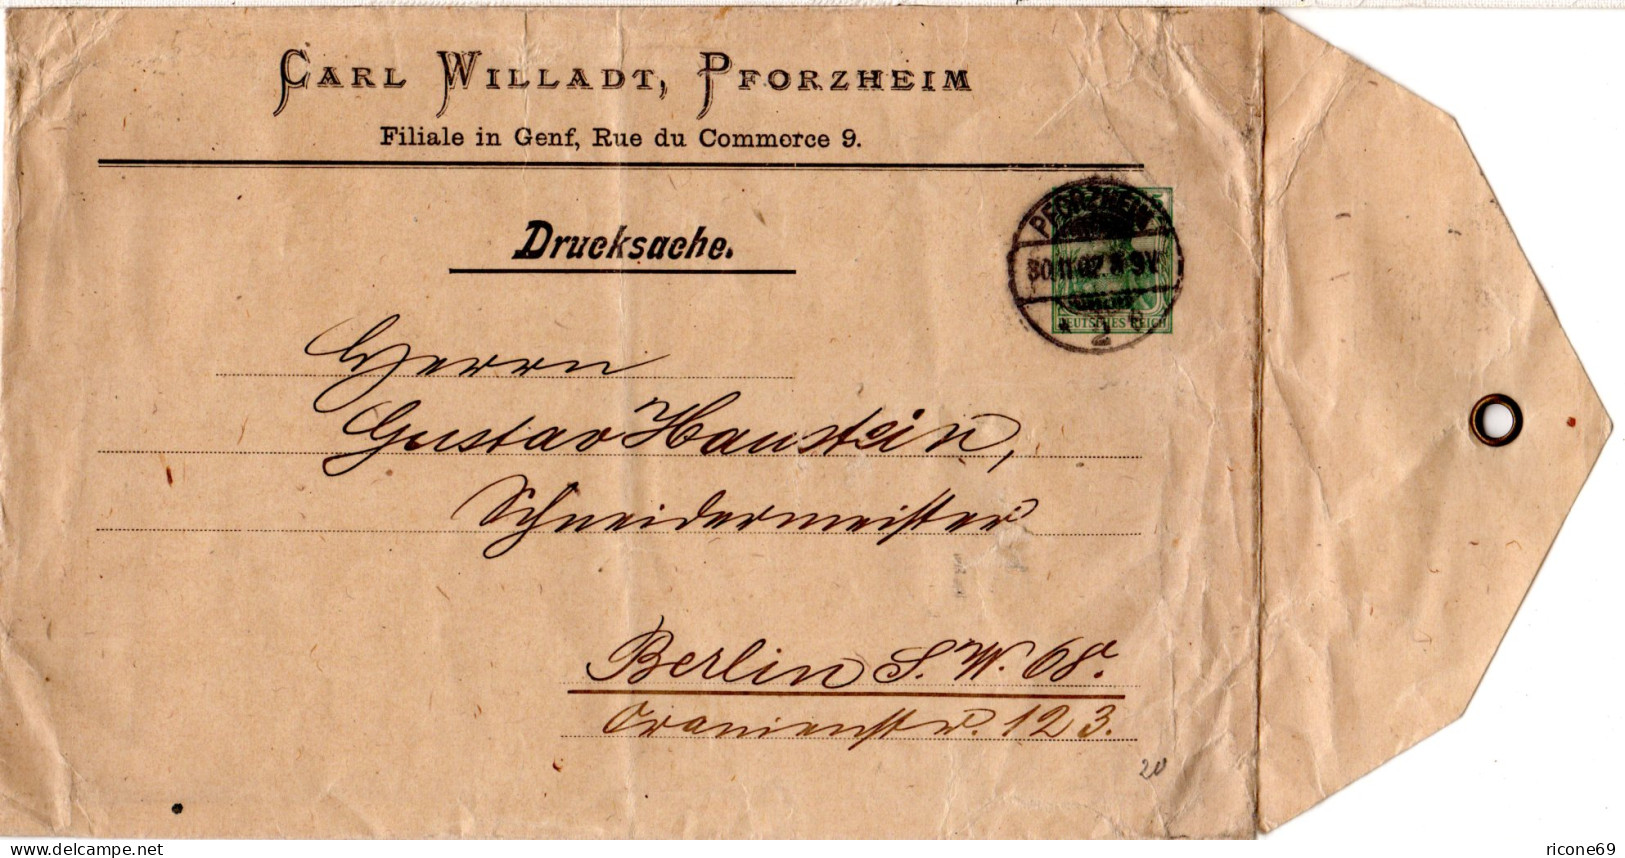 CARL WILLADT, PFORZHEIM
Filiale in Genf, Rue du Commerce 9.
Drucksache.
5
PFORZHEIM
30.11.02. 8-9V.
DEUTSCHES REICH
* 2
Herrn
Gustav Haustein,
Schneidermeister
Berlin S.W. 68.
Oranienstr. 123.
20
delcampe.net
ricone69